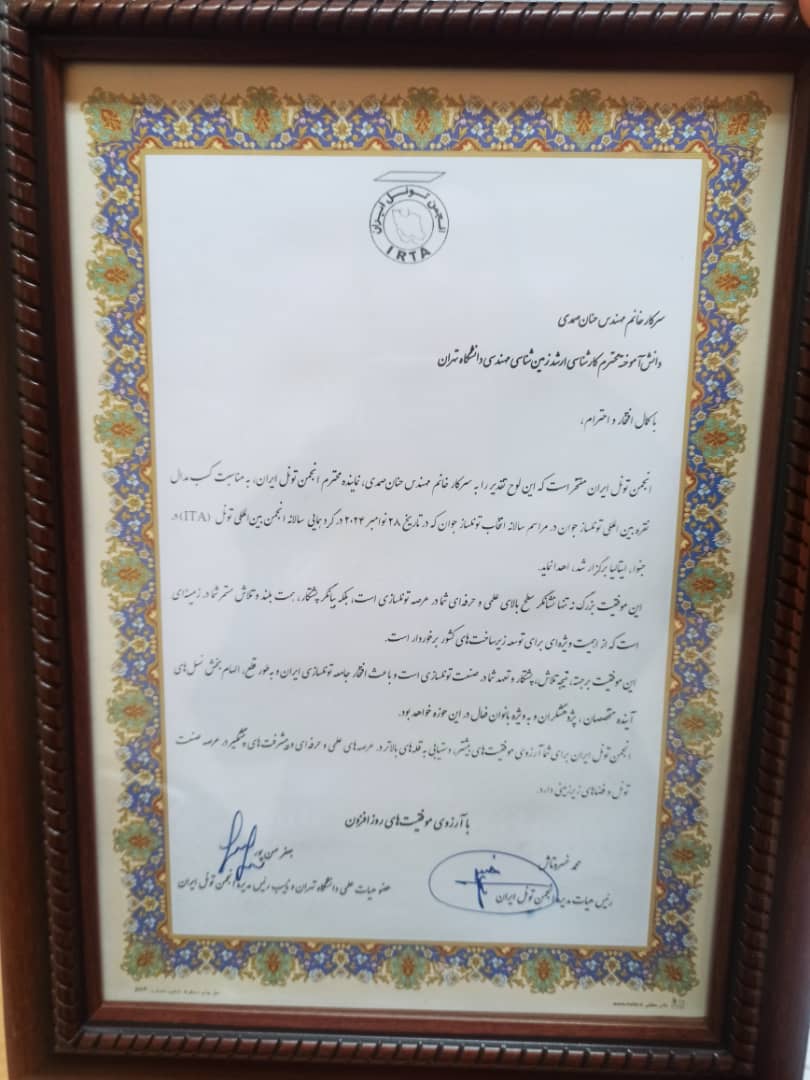 انجمن تونل ایران
IRTA
سرکار خانم مهندس حنان صمدی
دانش آموخته محترم کارشناسی ارشد زمین شناسی مهندسی دانشگاه تهران
با کمال افتخار و احترام،
انجمن تونل ایران مفتخر است که این لوح تقدیر را به سرکار خانم مهندس حنان صمدی، نماینده محترم انجمن تونل ایران، به مناسبت کسب مدال
نقره بین المللی تونلساز جوان در مراسم سالانه انتخاب تونلساز جوان که در تاریخ ۲۸ نوامبر ۲۰۲۴ در گردهمایی سالانه انجمن بین المللی تونل (ITA) در
جنوا، ایتالیا برگزار شد، اهدا نماید.
این موفقیت بزرگ نه تنها نشانگر سطح بالای علمی و حرفه ای شما در عرصه تونلسازی است، بلکه بیانگر پشتکار، همت بلند و تلاش مستمر شما در زمینه ای
است که از اهمیت ویژه ای برای توسعه زیرساخت های کشور برخوردار است.
این موفقیت برجسته، نتیجه تلاش، پشتکار و تعهد شما در صنعت تونلسازی است و باعث افتخار جامعه تونلسازی ایران و به طور قطع، الهام بخش نسل های
آینده متخصصان، پژوهشگران و به ویژه بانوان فعال در این حوزه خواهد بود.
انجمن تونل ایران برای شما آرزوی موفقیت های بیشتر، دستیابی به قله های بالاتر در عرصه های علمی و حرفه ای و پیشرفت های چشمگیر در عرصه صنعت
تونل و فضاهای زیرزمینی دارد.
با آرزوی موفقیت های روز افزون
محمد خسروتاش
رئیس هیات مدیره انجمن تونل ایران
جعفر حسن پور
عضو هیات علمی دانشگاه تهران و نایب رئیس هیات مدیره انجمن تونل ایران